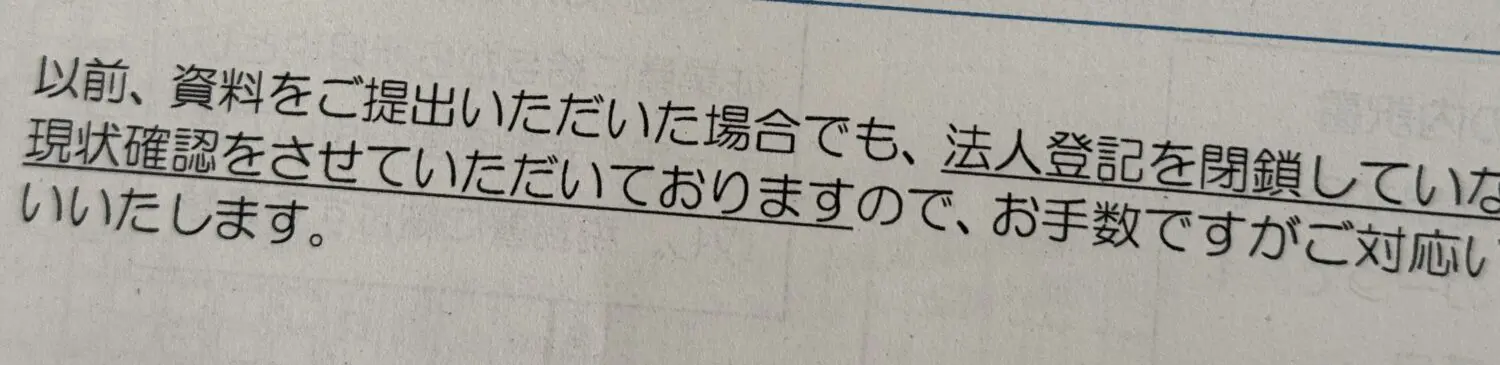 以前、資料をご提出いただいた場合でも、法人登記を閉鎖していな
現状確認をさせていただいておりますので、お手数ですがご対応い
いいたします。